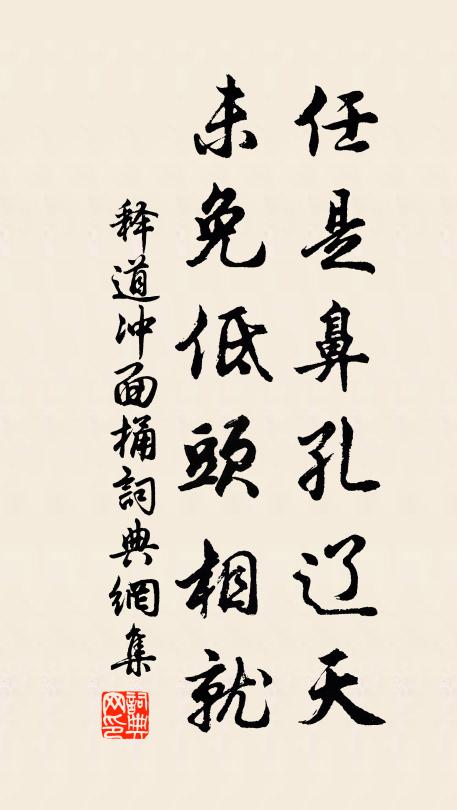 任是鼻孔辽天
未免低頭相就
释道冲面桶詞典網集
詞典网印